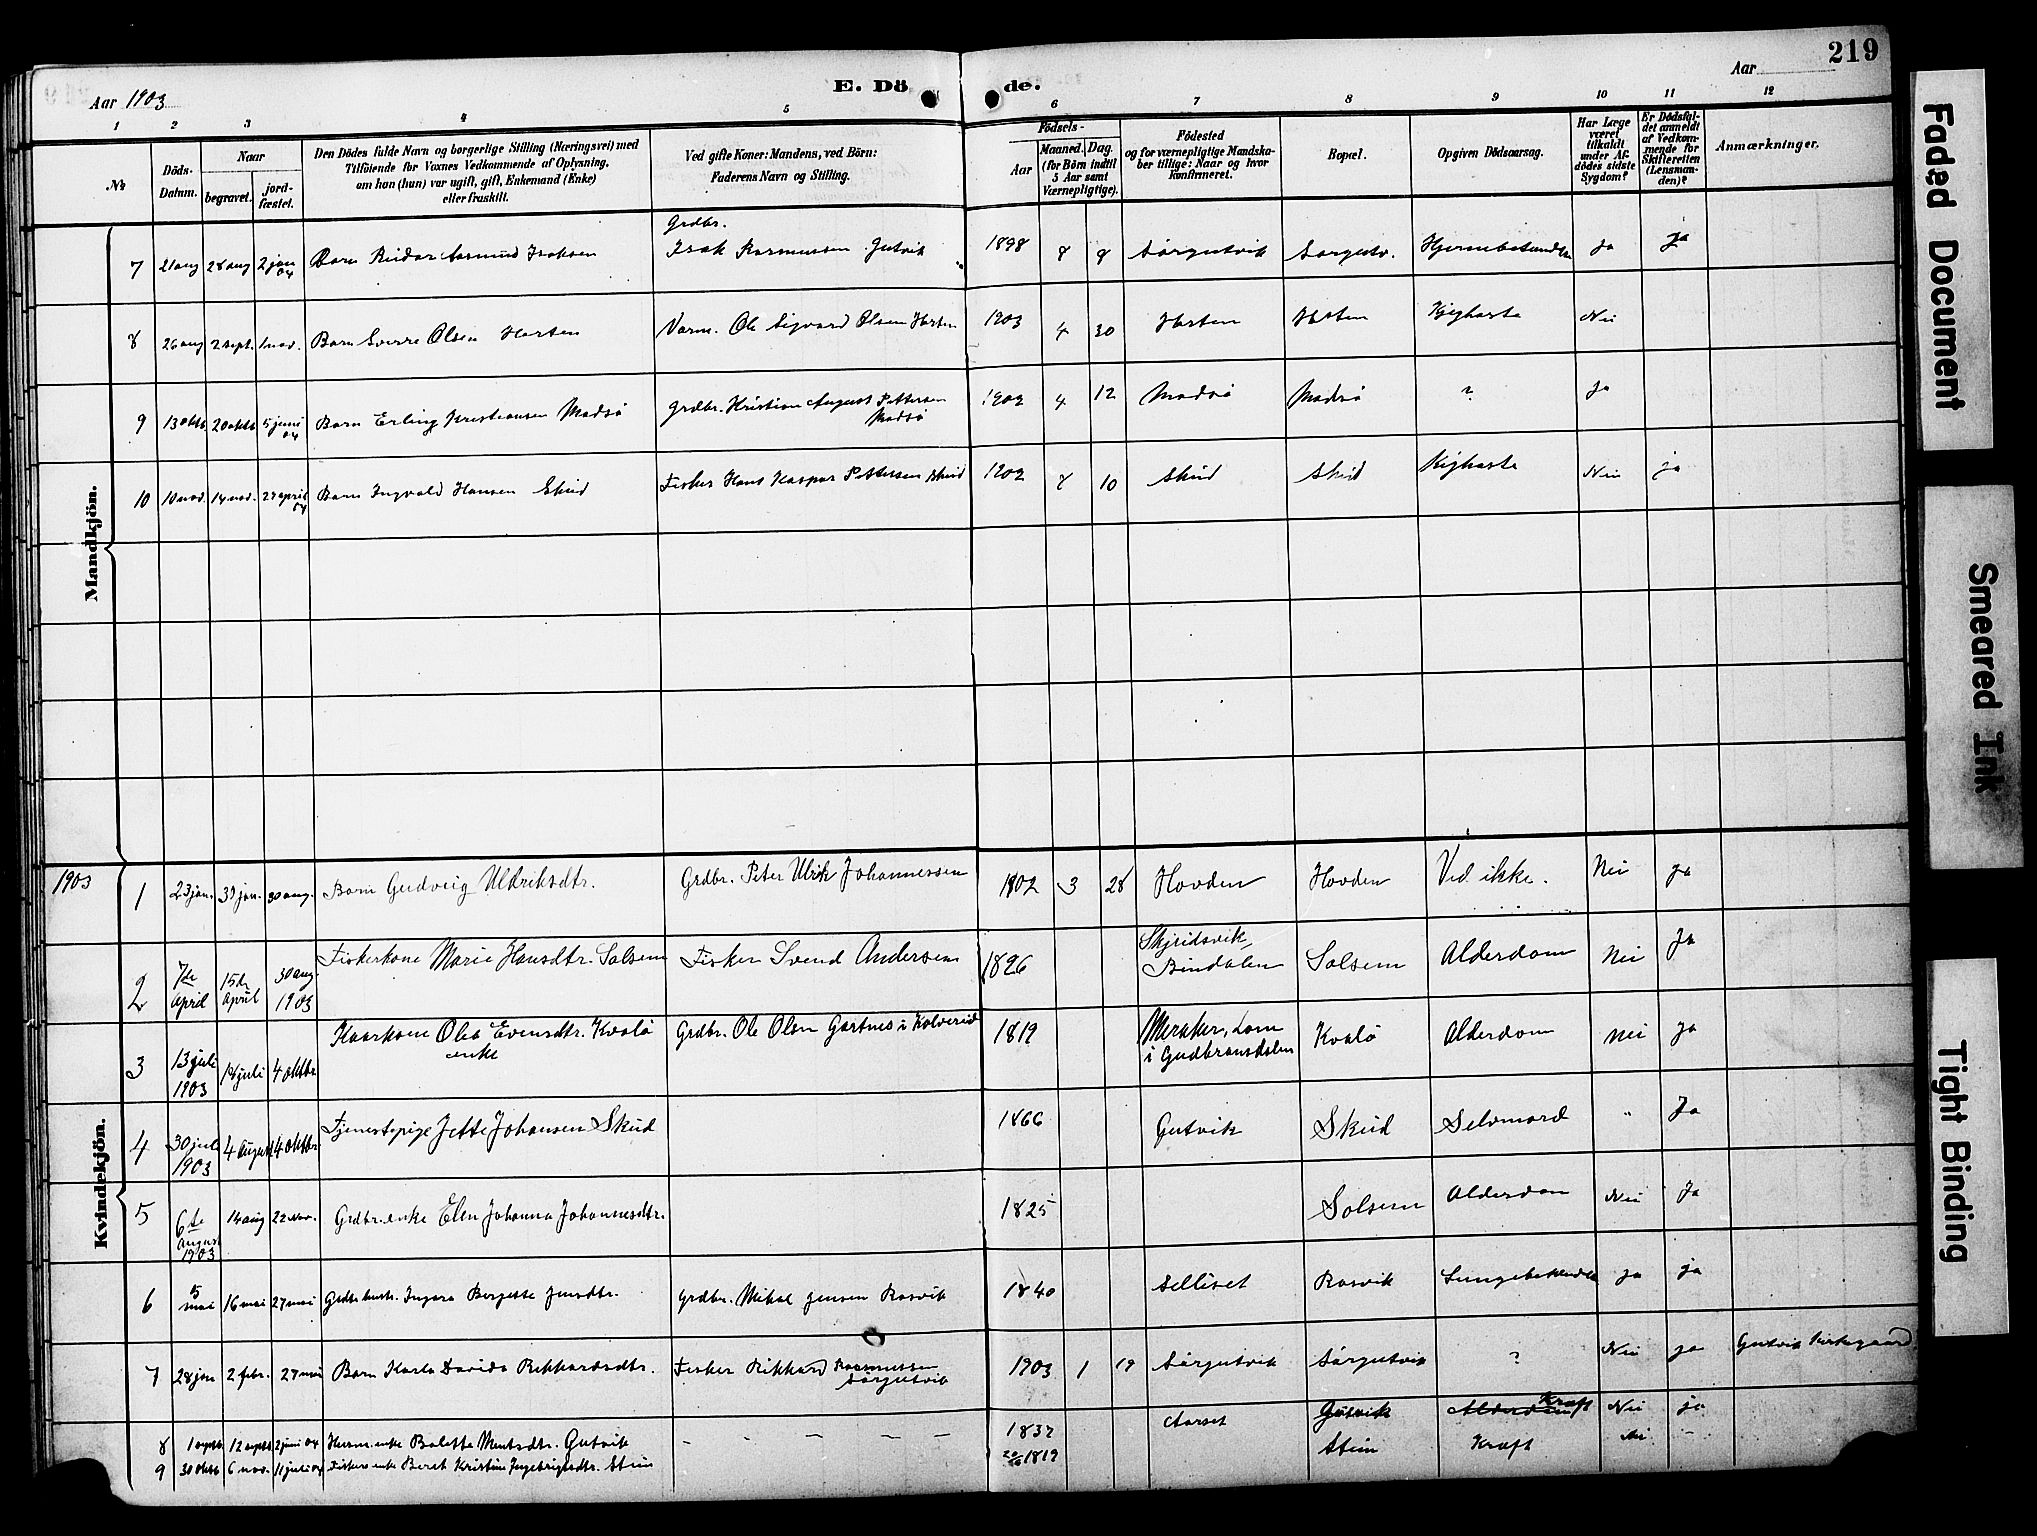 219
Aar 1903
E. Dö
de.
Aar
1 2 3 4 5 6 7 8 9 10 11 12
№
Döds-
Datum.
Naar
begravet.
jord-
fæstet.
Den Dödes fulde Navn og borgerlige Stilling (Næringsvei) med
Tilföiende for Voxnes Vedkommende af Oplysning,
om han (hun) var ugift, gift, Enkemand (Enke)
eller fraskilt.
Ved gifte Koner: Mandens, ved Börn:
Faderens Navn og Stilling.
Födsels-
Aar
Maaned. Dag.
(for Börn indtil
5 Aar samt
Værnepligtige).
Födested
og for værnepligtige Mandska-
ber tillige: Naar og hvor
konfirmeret.
Bopæl.
Opgiven Dödsaarsag.
Har Læge
været
tilkaldt
under Af-
dödes sidste
Sygdom?
Er Dödsfal-
det anmeldt
af Vedkom-
mende for
Skifteretten
(Lensman-
den)?
Anmærkninger.
Mandkjön.
Grdbr.
7 21 aug 28 aug 2 jan 04 Barn Reidar Aasmund Isaksen Isak Rasmussen Gutvik 1898 8 8 Sörgutvik Sörgutv. Hjernebetændelse ja ja
8 26 aug 2 sept. 1 nov. Barn Sverre Olsen Horten Varm. Ole Sigvard Olsen Horten 1903 4 30 Horten Horten Kighoste Nei
9 13 oktb 20 oktb 5 juni 04 Barn Erling Kristiansen Madsö Grdbr. Kristian August Pettersen Madsö 1902 4 12 Madsö Madsö ? ja
10 10 nov. 14 nov. 24 april 04 Barn Ingvald Hansen Skeid Fisker Hans Kaspar Pettersen Skeid 1902 8 10 Skeid Skeid Kighoste Nei ja
Kvindekjön.
1903 1 23 jan. 31 jan. 30 aug. Barn Gudveig Uldriksdtr. Grdbr. Peter Ulrik Johannessen 1902 3 28 Hovden Hovden Ved ikke. Nei ja
2 7de April 15de April 30 aug. 1903 Fiskerkone Marie Hansdtr. Solsem Fisker Svend Andersen 1826 Skjeidsvik, Bindalen Solsem Alderdom Nei Ja
3 13 juli 1903 18 juli 4 oktbr. Kaarkone Olea Evensdtr. Kvalö enke Grdbr. Ole Olsen Gartnes i Kolvereid 1819 Meraker, Lom i Gudbransdalen Kvalö Alderdom Nei ja
4 30 juli 1903 4 August 4 oktbr. Tjenestepige Jette Johansen Skeid 1866 Gutvik Skeid Selvmord " Ja
5 6te August 1903 14 aug 22 Nov. Grdbr. enke Elen Johanna Johannesdtr. 1825 Solsem Alderdom Nei Ja
6 5 mai 16 mai 27 mai Grdbr. hustr. Ingera Bergette Jensdtr. Grdbr. Mikal Jensen Rosvik 1840 Selliset Rosvik Lungebetændelse ja ja
7 28 jan 2 febr. 27 mai Barn Karla Davida Rikkardsdtr. Fisker Rikkard Rasmussen Sörgutvik 1903 1 19 Sörgutvik Sörgutvik ? Nei ja Gutvik Kirkegaard
8 1 septb 12 septb 2 juni 04 Husm. enke Bolette Mentsdtr. Gutvik – – – – – 1837 Aarset Gutvik Alderdom Kræft Nei ja
9 30 oktb 6 nov. 11 juli 04 Fisker enke Beret Kristine Ingebrigtsdtr. Stein 1819 Stein Kræft Nei –
Faded Document
Smeared Ink
Tight Binding